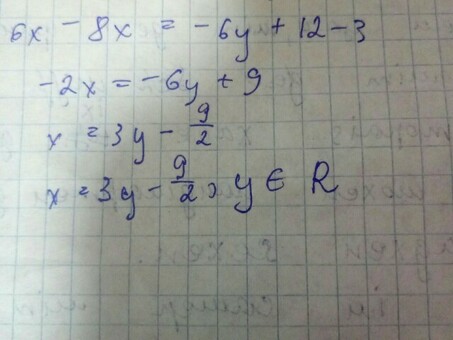 6x - 8x = -6y + 12 - 3
-2x = -6y + 9
x = 3y - 9/2
x = 3y - 9/2, y ∈ R